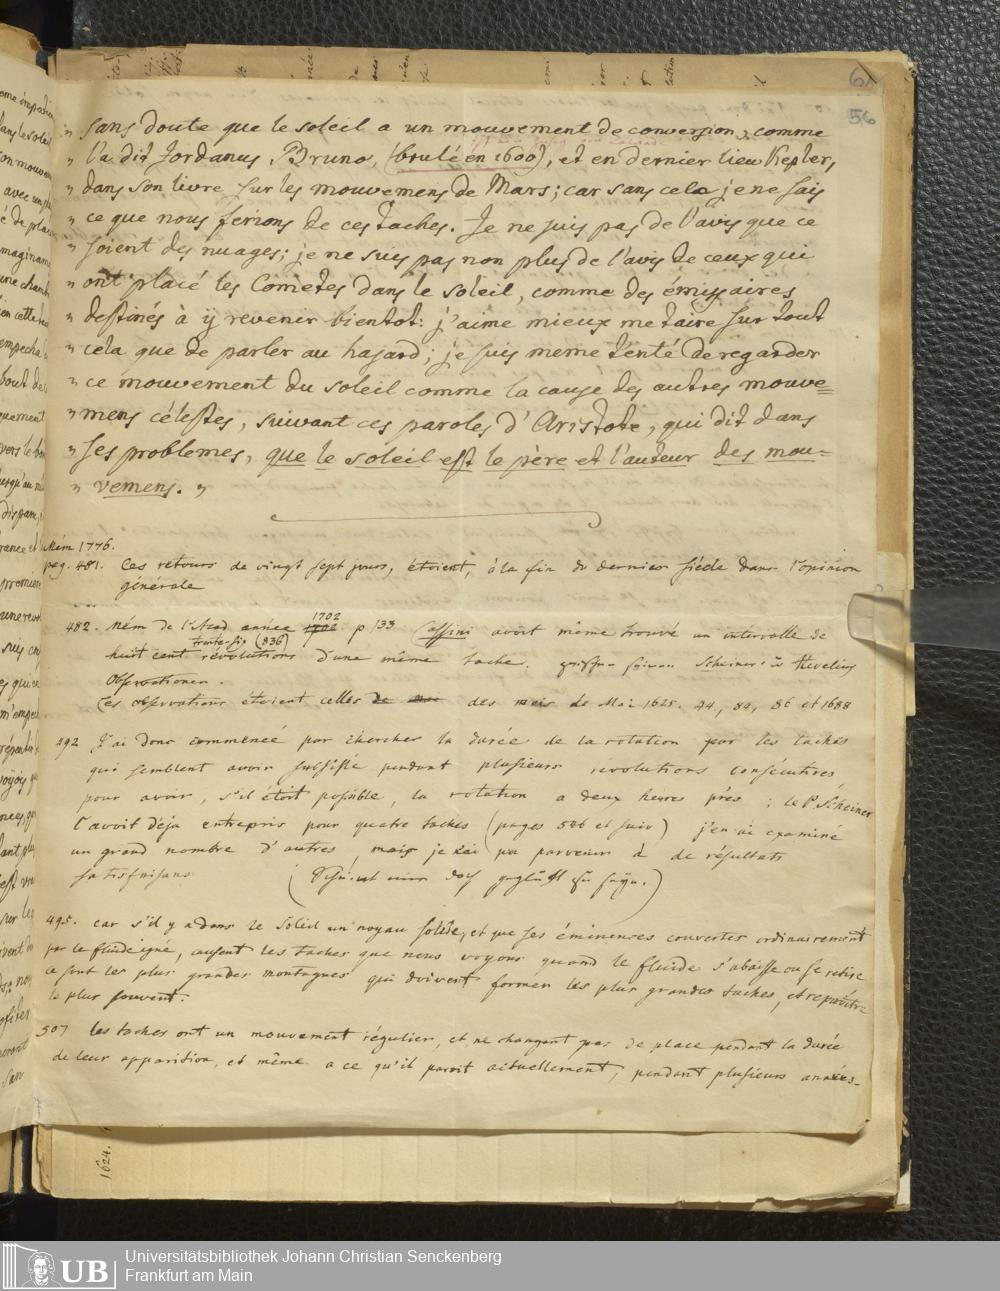 56
„ sans doute que le soleil a un mouvement de conversion, comme
„ l'a dit Jordanus Bruno, (brulé en 1600), et en dernier lieu Kepler,
„ dans son livre sur les mouvemens de Mars; car sans cela je ne sais
„ ce que nous ferions de ces taches. Je ne suis pas de l'avis que ce
„ soient des nuages; je ne suis pas non plus de l'avis de ceux qui
„ ont placé les Comètes dans le soleil, comme des émissaires
„ destinés à y revenir bientot: j'aime mieux me taire sur tout
„ cela que de parler au hasard; je suis meme tenté de regarder
„ ce mouvement du soleil comme la cause des autres mouve=
„ mens célestes, suivant ces paroles d'Aristote, qui dit dans
„ ses problemes, que le soleil est le père et l'auteur des mou=
„ vemens. „
Mém 1776.
pag. 481. Ces retours de vingt sept jours, étoient, à la fin du dernier siécle dans l'opinion
générale
482. Mém de l'Acad année 1702 p 133 Cassini avoit même trouvé un intervalle de
huit cent trente-six (836) révolutions d'une même tache. Scheiner's u Hevelius
Observationen.
Ces observations étoient celles des mois de Mai 1625. 44, 84, 86 et 1688
492 J'ai donc commencé par chercher la durée de la rotation par les taches
qui semblent avoir subsisté pendant plusieurs révolutions consécutives
pour avoir, s'il étoit possible, la rotation a deux heures près; le P. Scheiner
l'avoit déja entrepris pour quatre taches (pages 546 et suiv) j'en ai examiné
un grand nombre d'autres mais je n'ai pu parvenir à de résultats
satisfaisans
495. car s'il y a dans le Soleil un noyau solide, et que ses éminences couvertes ordinairement
par le fluide igné, causent les taches que nous voyons quand le fluide s'abaisse ou se retire
ce sont les plus grandes montagnes qui doivent former les plus grandes taches, et reparoître
le plus souvent.
507 les taches ont un mouvement régulier, et ne changent pas de place pendant la durée
de leur apparition, et même a ce qu'il paroit actuellement, pendant plusieurs années.
1624.
UB
Universitätsbibliothek Johann Christian Senckenberg
Frankfurt am Main